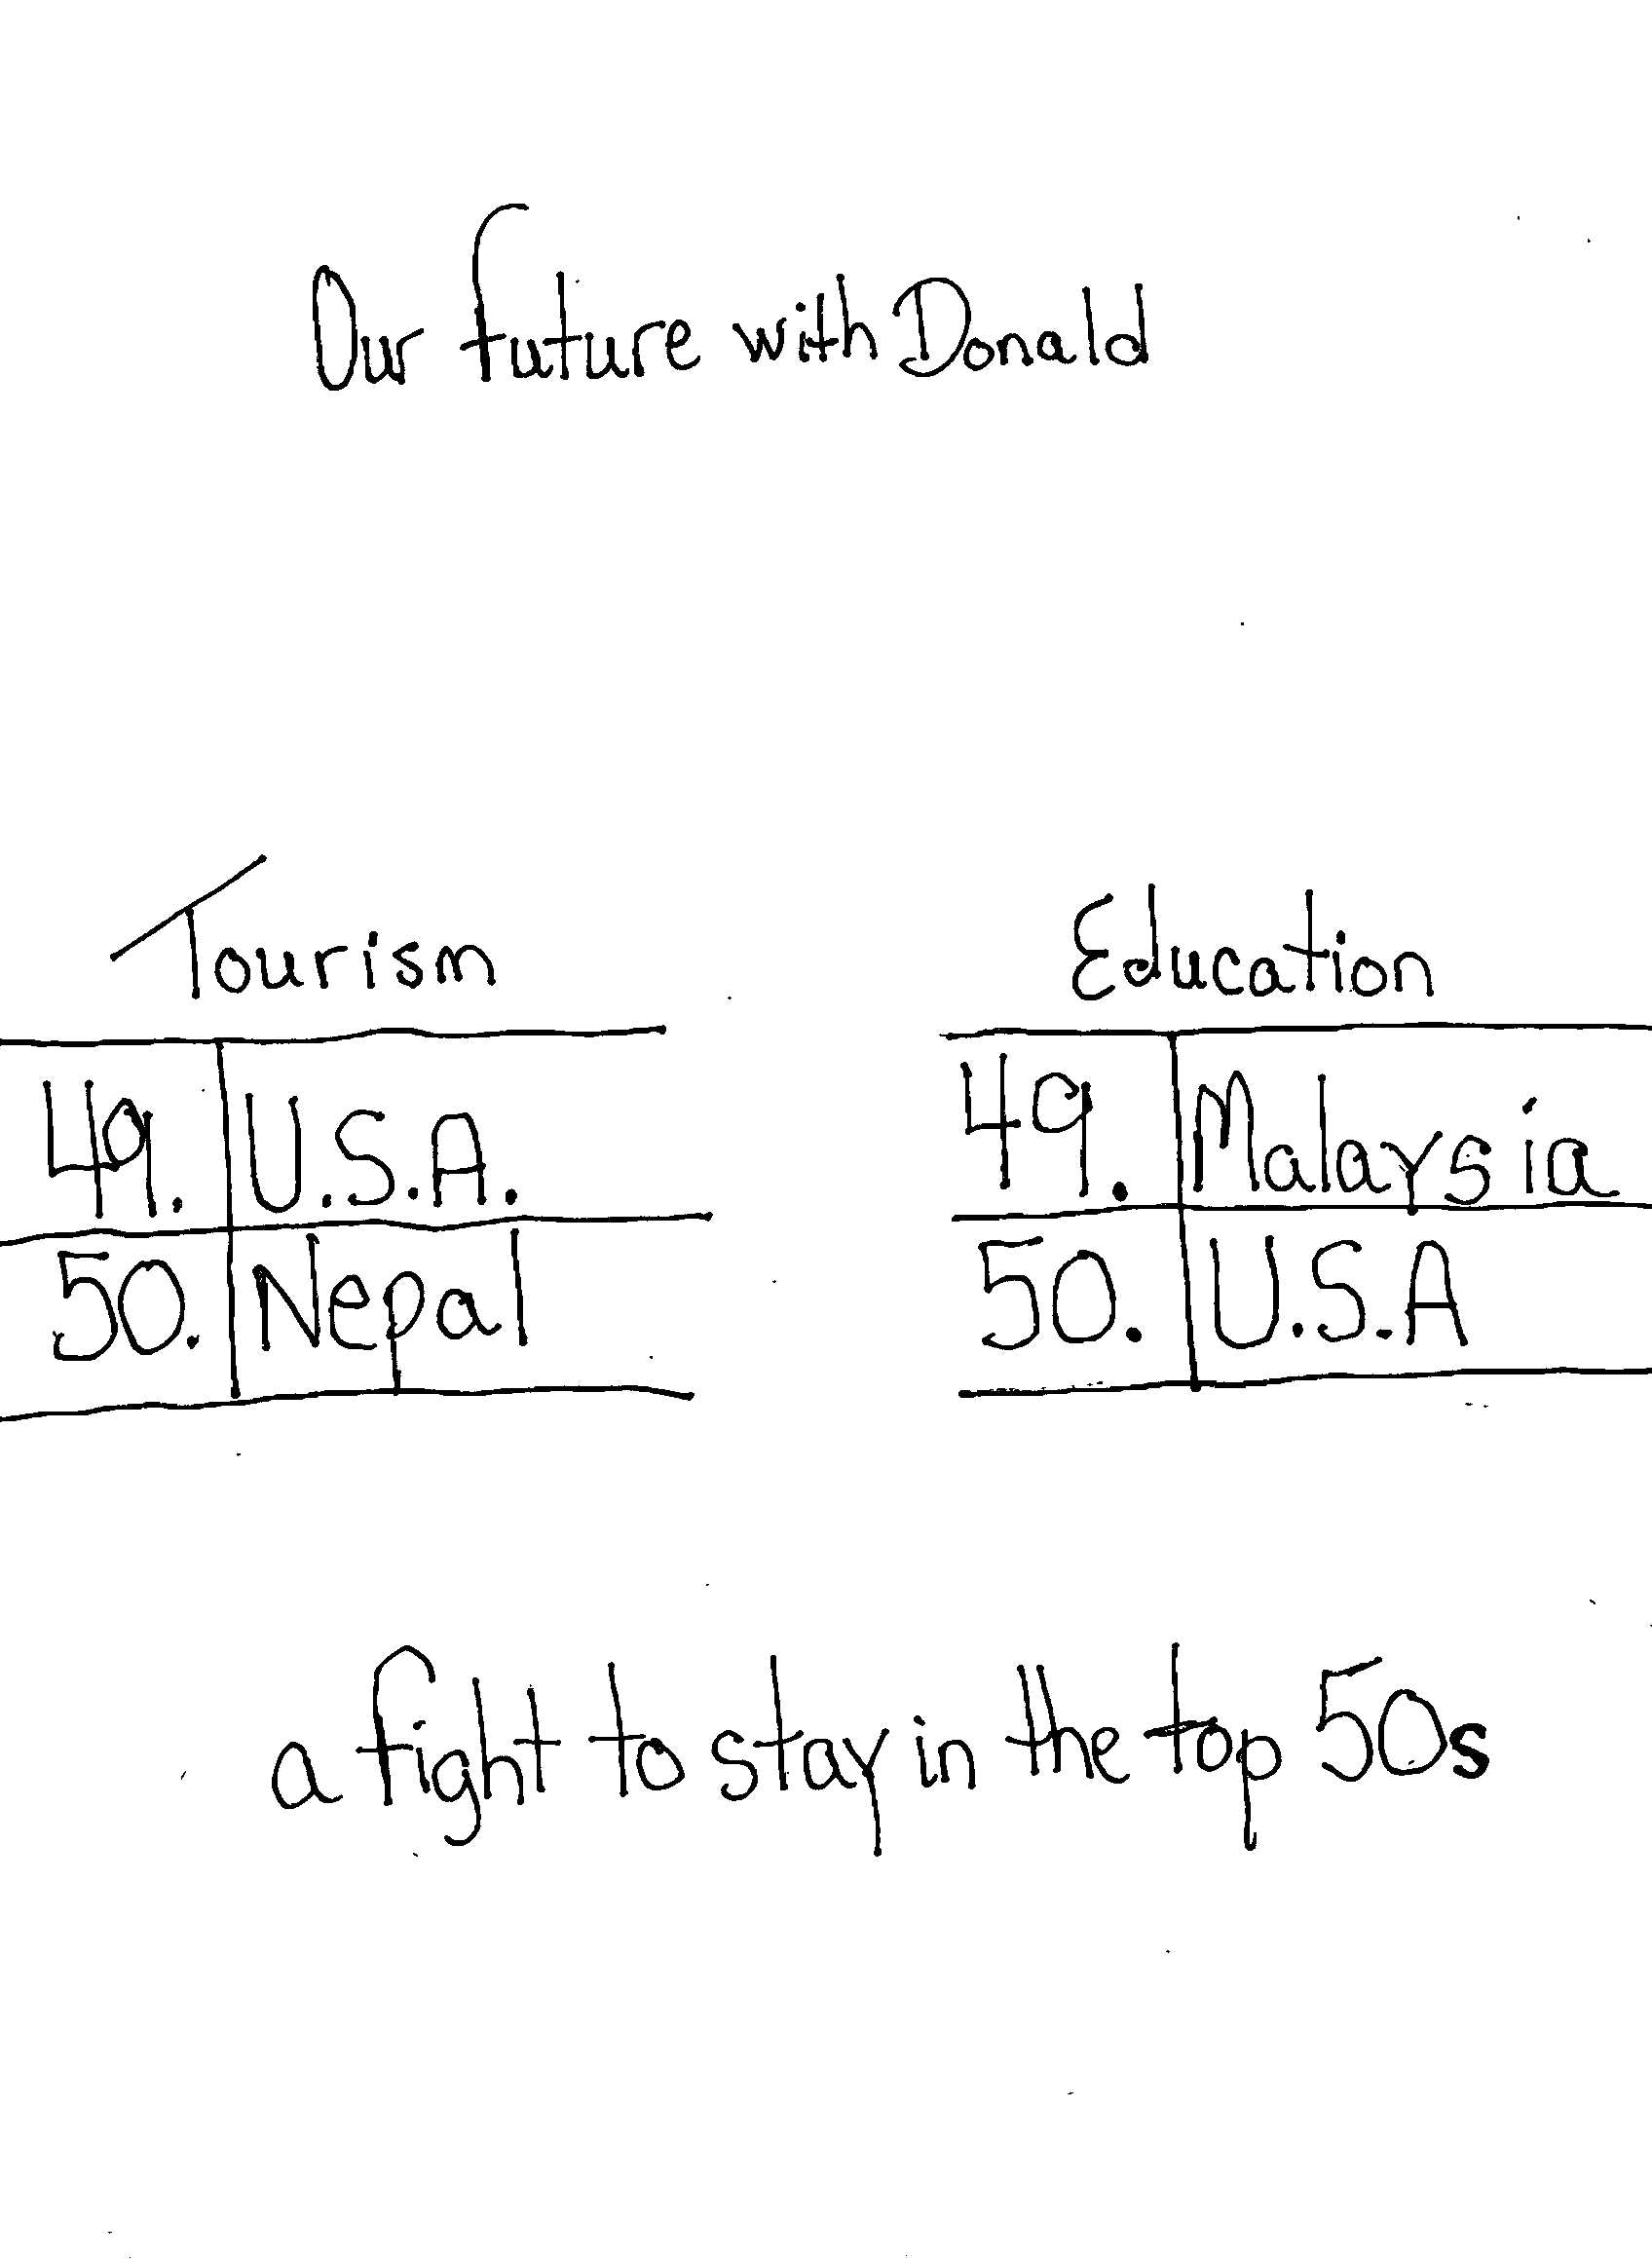 Our future with Donald
Tourism
49. U.S.A.
50. Nepal
Education
49. Malaysia
50. U.S.A
a fight to stay in the top 50s